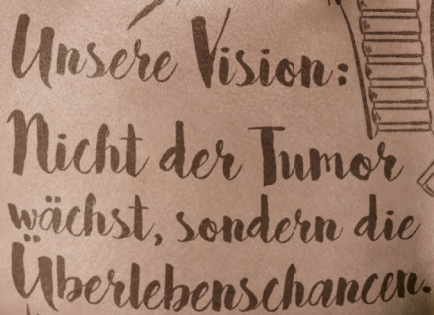 Unsere Vision:
Nicht der Tumor
wächst, sondern die
Überlebenschancen.